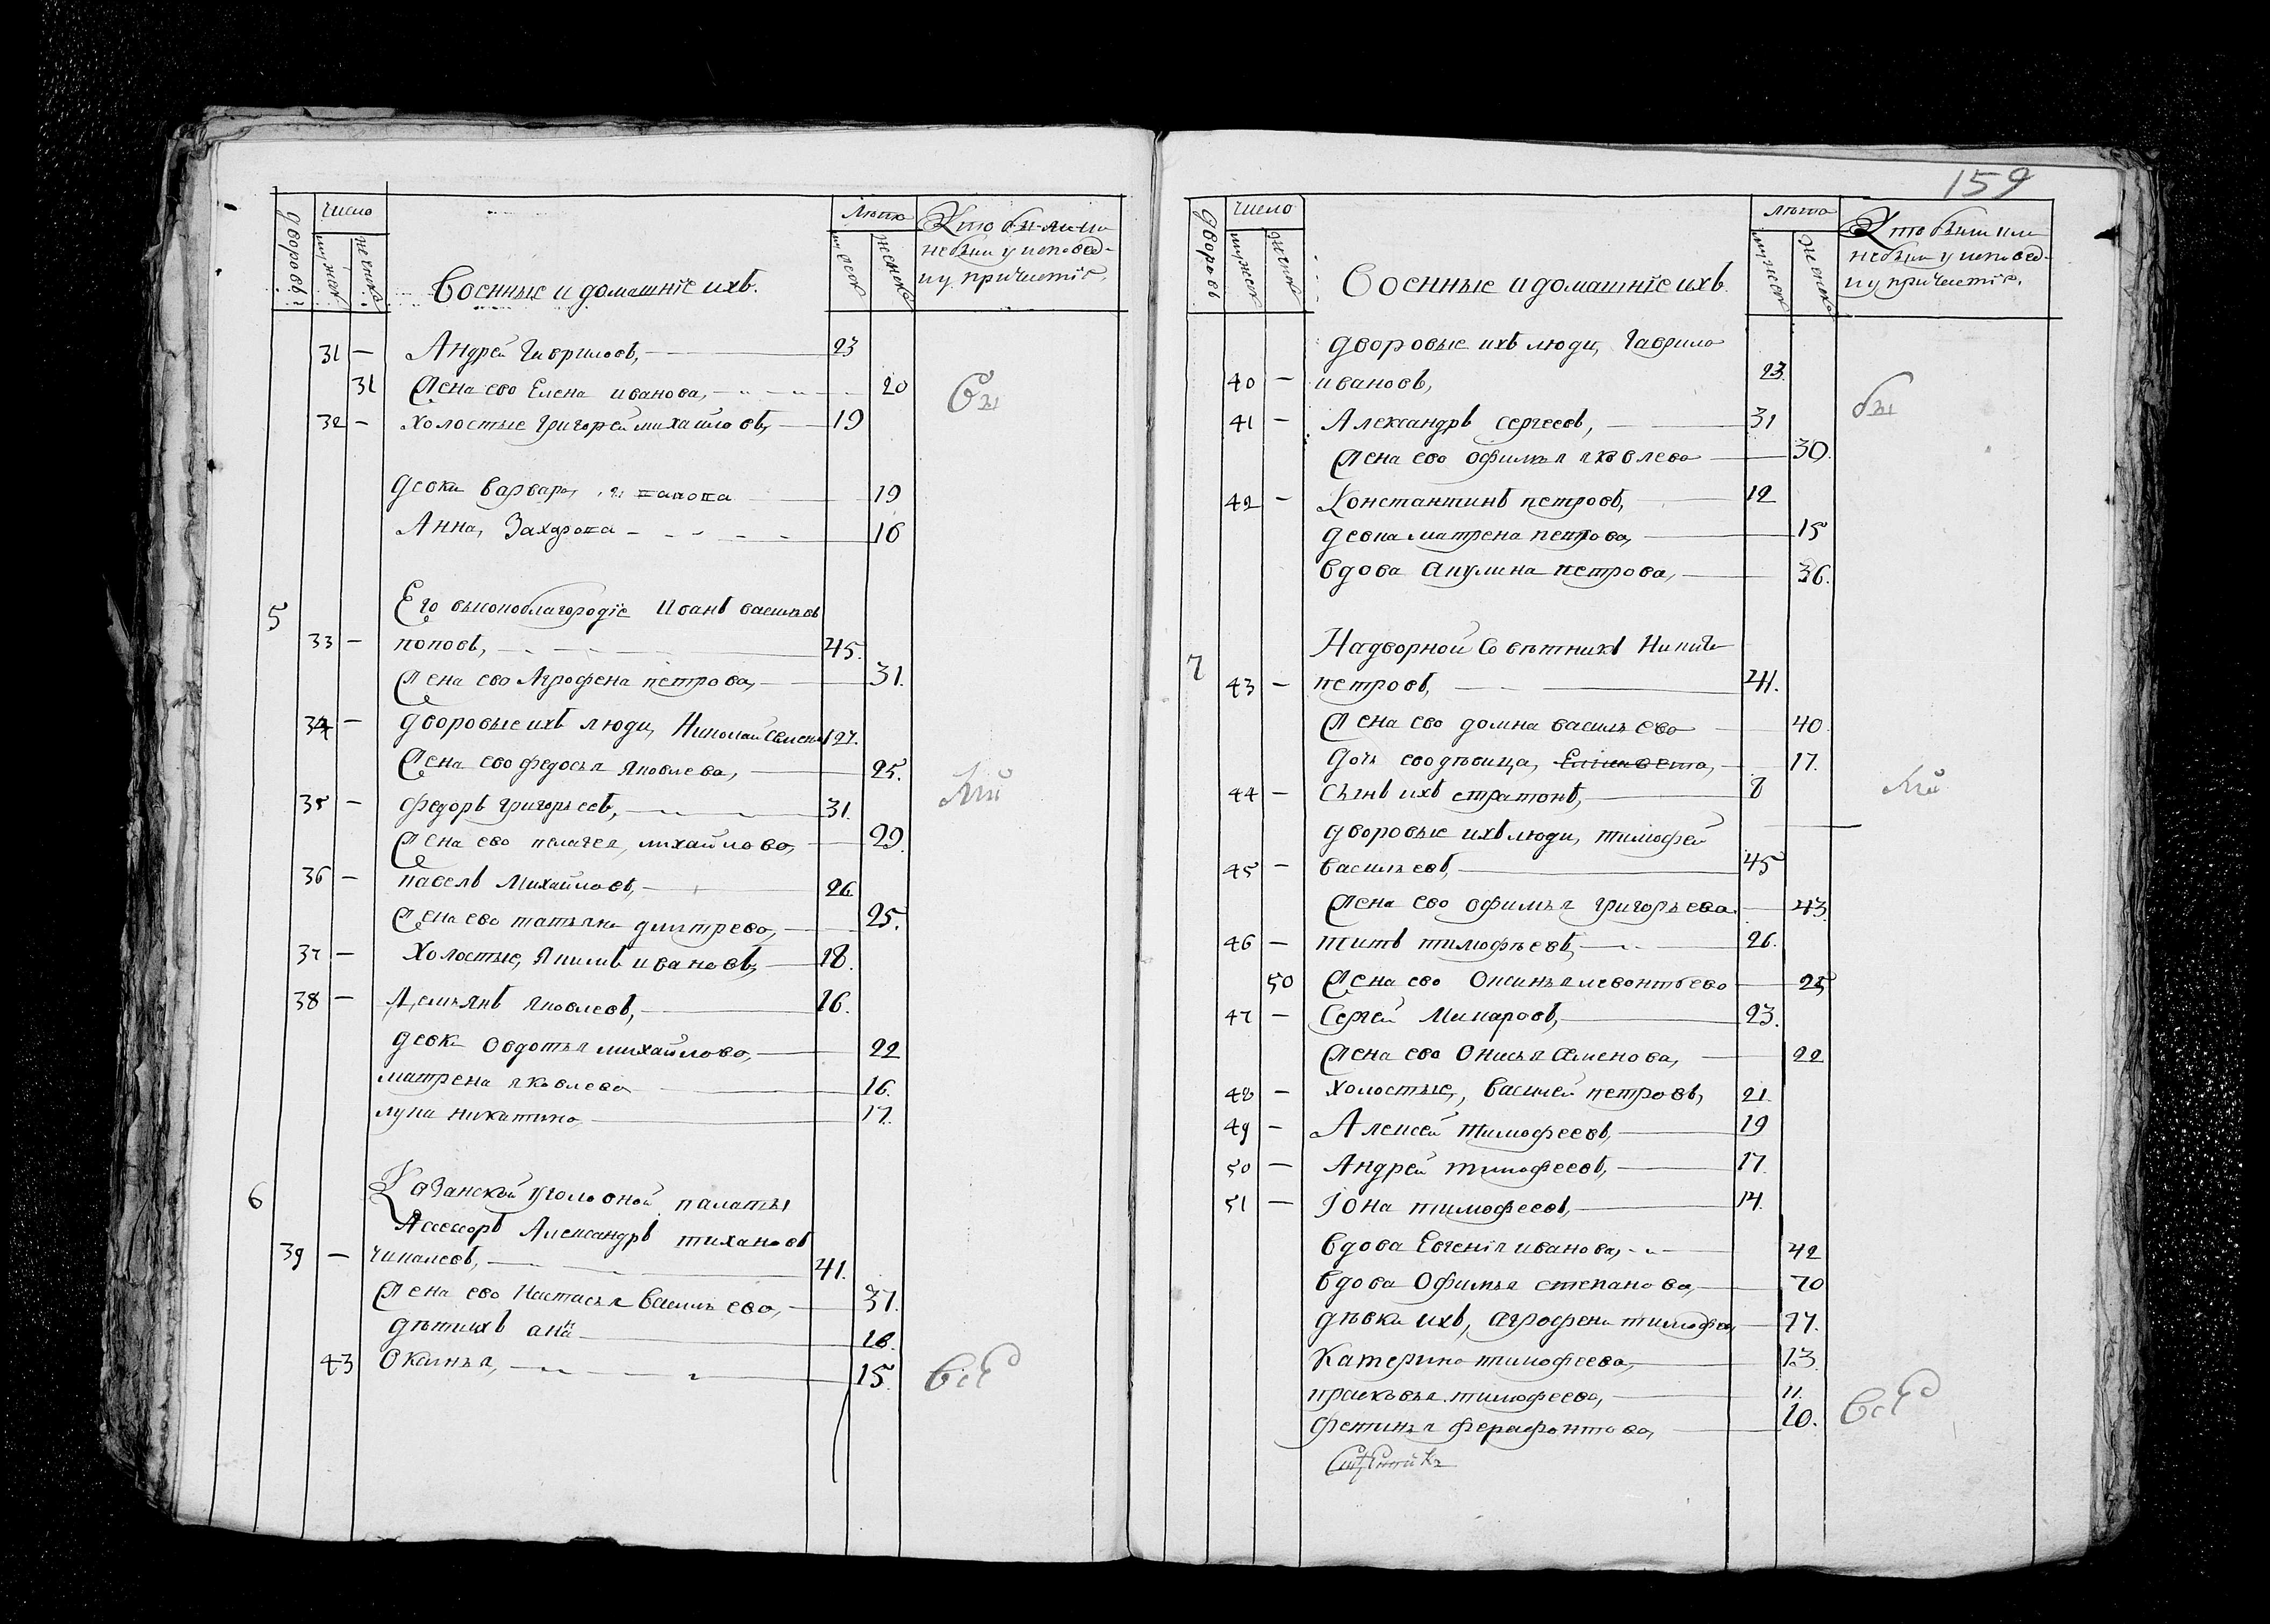 дворовъ
число
мужеск
женска
Военные и домашнїе ихъ.
лѣта
мужеск
женск
Кто был или
небыл у исповед-
и у причастїя.
31 — Андрей Гаврилов, — 23
31 Жена ево Елена иванова, — 20
32 — холостые григорей михайловъ, — 19
бы
девки варвара — 19
Анна, Захарова — 16
5 Его высокоблагородїе Иванъ васильев
33 — поповъ, — 45.
Жена ево Агрофена петрова, — 31.
34 — дворовые ихъ люди, Николай Семенов 27.
Жена ево федосья яковлева, — 25.
35 — федоръ григорьевъ, — 31.
лй
Жена ево пелагея, михайлова, — 29.
36 — павелъ Михайловъ, — 26
Жена ево татьяна дмитрева, — 25.
37 — Холостые, Якимъ ивановъ, — 18.
38 — Демьянъ яковлевъ, — 16.
девки Овдотья михайлова, — 22
матрена яковлева — 16.
лупа никитина, — 17.
6 Козанской уголовной палаты
Ассесоръ Александръ тихановъ
39 — чикалевъ, — 41.
Жена ево Настасья Васильева, — 37.
дѣти ихъ анна — 18.
43 Оксинья, — 15.
всѣ
159
дворовъ
число
мужеск
женск
Военные и домашнїе ихъ
лѣта
мужеск
женска
Кто были или
небыли у исповед-
и у причастїя.
дворовые ихъ люди, Гаврило
40 — ивановъ, 23.
бы
41 — Александръ сергеевъ, — 31
Жена ево офимья яковлева — 30.
42 — Константинъ петровъ, — 12
девка матрена петрова, — 15
вдова Акулина петрова, — 36.
7 Надворной Советникъ Никита
43 — петровъ, — 41.
Жена ево домна васильева — 40
дочь ево девица, Елисавета, — 17.
44 — Сынъ ихъ стратонъ, — 8
лй
дворовые ихъ люди, тимофей
45 — васильевъ, — 45
Жена ево офимья григорьева. — 43
46 — титъ тимофеевъ, — 26.
50 Жена ево Оксинья левонтьева — 25
47 — Сергей Макаровъ, — 23.
Жена ево Онисья семенова, — 22
48 — холостые, василей петровъ, 21.
49 — Алексей тимофеевъ, — 19
50 — Андрей тимофеевъ, — 17.
51 — Iона тимофеевъ, — 14.
вдова Евгенїя иванова, — 42
вдова Офимья степанова, — 70
дѣвки ихъ, агрофена тимофеева — 27.
Катерина тимофеева, — 13.
прасковья тимофеева, — 11.
фетинья ферафонтова, — 10.
всѣ